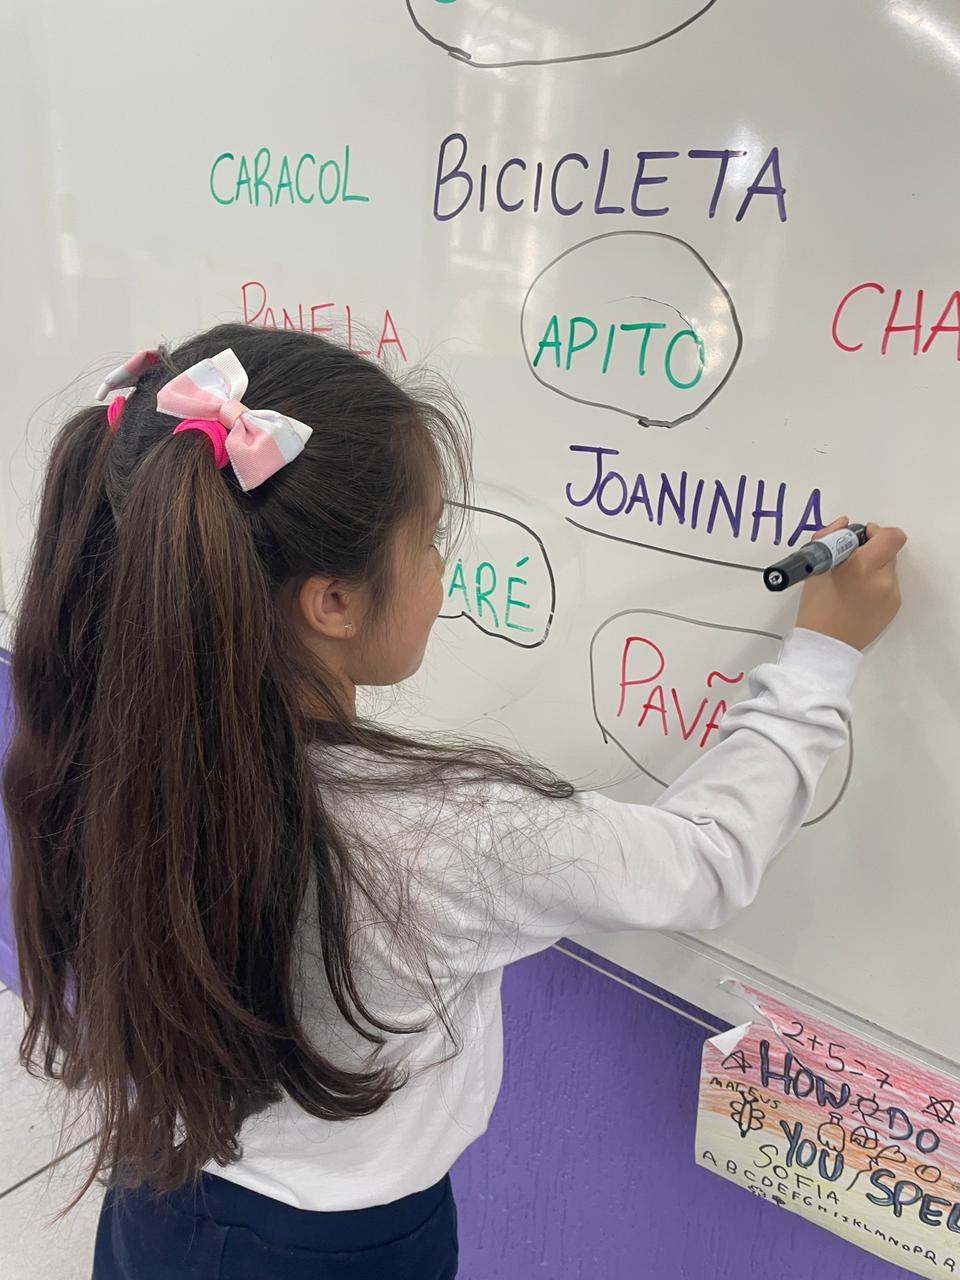 CARACOL BICICLETA
PANELA APITO CHA
JOANINHA
ARÉ
PAVÃ
2+5=7
HOW DO
MATEUS
YOU SPEL
SOFIA
ABCDEFGHIJKLMNOPQR